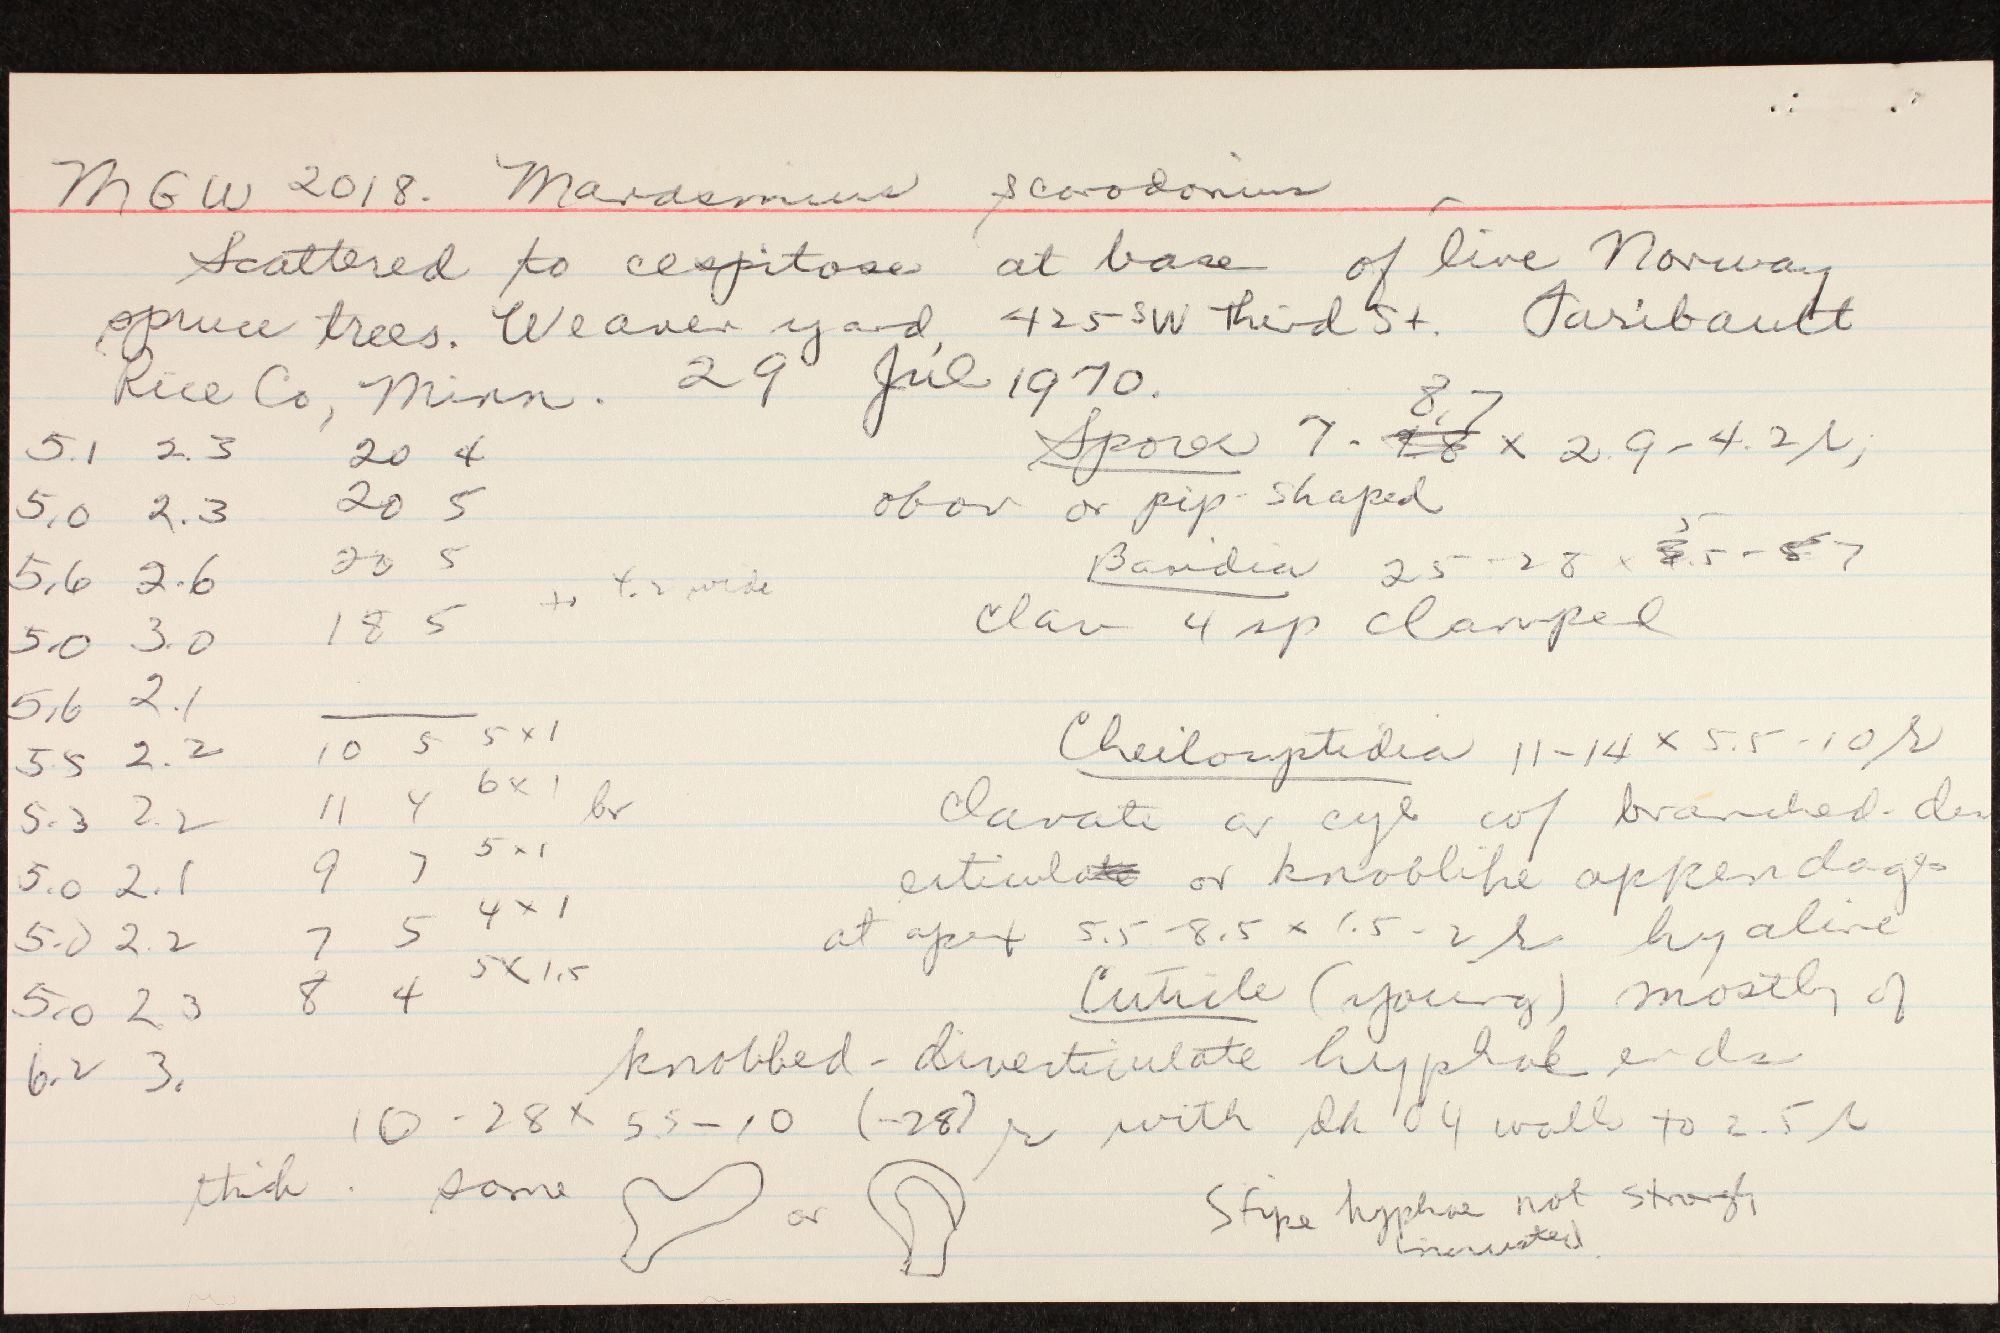 MGW 2018. Marasmius scorodonius
Scattered to cespitose at base of live Norway
spruce trees. Weaver yard, 425 SW Third St. Faribault
Rice Co, Minn. 29 Jul 1970.
5.1 2.3 20 4 Spores 7- 8.7 × 2.9-4.2 μ;
5.0 2.3 20 5 obov or pip-shaped
5.6 2.6 20 5 Basidia 25-28 × 5.5-7
to 4.2 wide
5.0 3.0 18 5 Clav 4 sp clamped
5.6 2.1
5.5 2.2 10 5 5×1 Cheilocystidia 11-14 × 5.5-10 μ
5.3 2.2 11 4 6×1 br Clavate or cyl w/ branched-div
5.0 2.1 9 7 5×1 erticula or knoblike appendages
5.0 2.2 7 5 4×1 at apex 5.5-8.5 × 1.5-2 μ hyaline
5.0 2.3 8 4 5×1.5 Cuticle (young) mostly of
6.2 3. knobbed-diverticulate hyphae ends
10-28 × 5.5-10 (-28) μ with dk wall to 2.5 μ
thick. some or Stipe hyphae not strongly
incrusted.